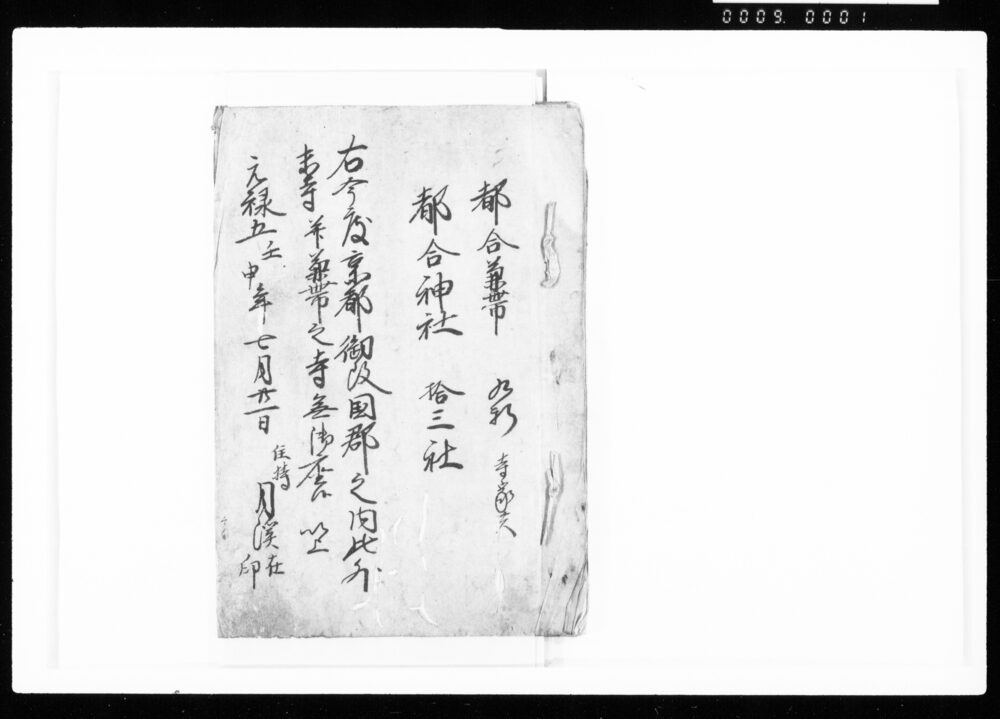 0009.0001
都合兼帯 九軒 寺家共
都合神社 拾三社
右今度京都御改国郡之内此外
末寺并兼帯之寺無御座候 以上
元禄五壬申年 七月廿一日
住持 月渓 在印